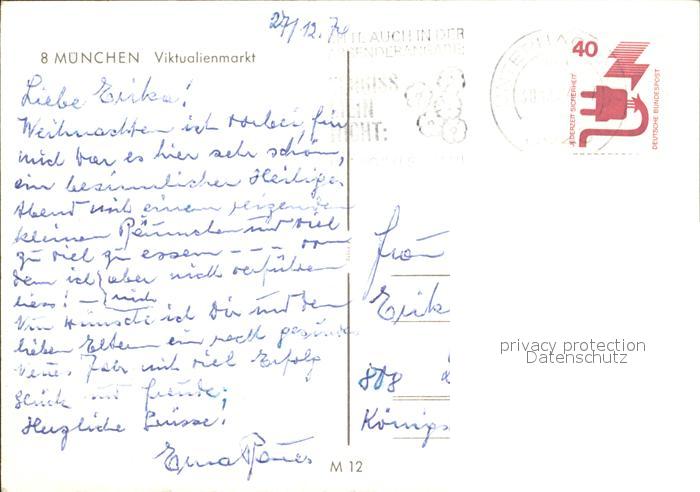 27/12.74
8 MÜNCHEN Viktualienmarkt
Liebe Erika!
Weihnachten ist vorbei, für
mich war es hier sehr schön,
ein besinnlicher Heiliger
Abend mit einem reizenden
kleinen Bäumchen und viel
zu viel zu essen - - - von
dem ich aber nicht verführen
liess! - mich
Nun wünsche ich Dir und den
lieben Eltern ein recht gesundes
Neues Jahr mit viel Erfolg
Glück und Freude,
Herzliche Grüsse!
Erna
M 12
AUCH IN DER
ABSENDERANGABE
NICHT:
40
JEDERZEIT SICHERHEIT
DEUTSCHE BUNDESPOST
Frau
Erik
808
Königs
privacy protection
Datenschutz